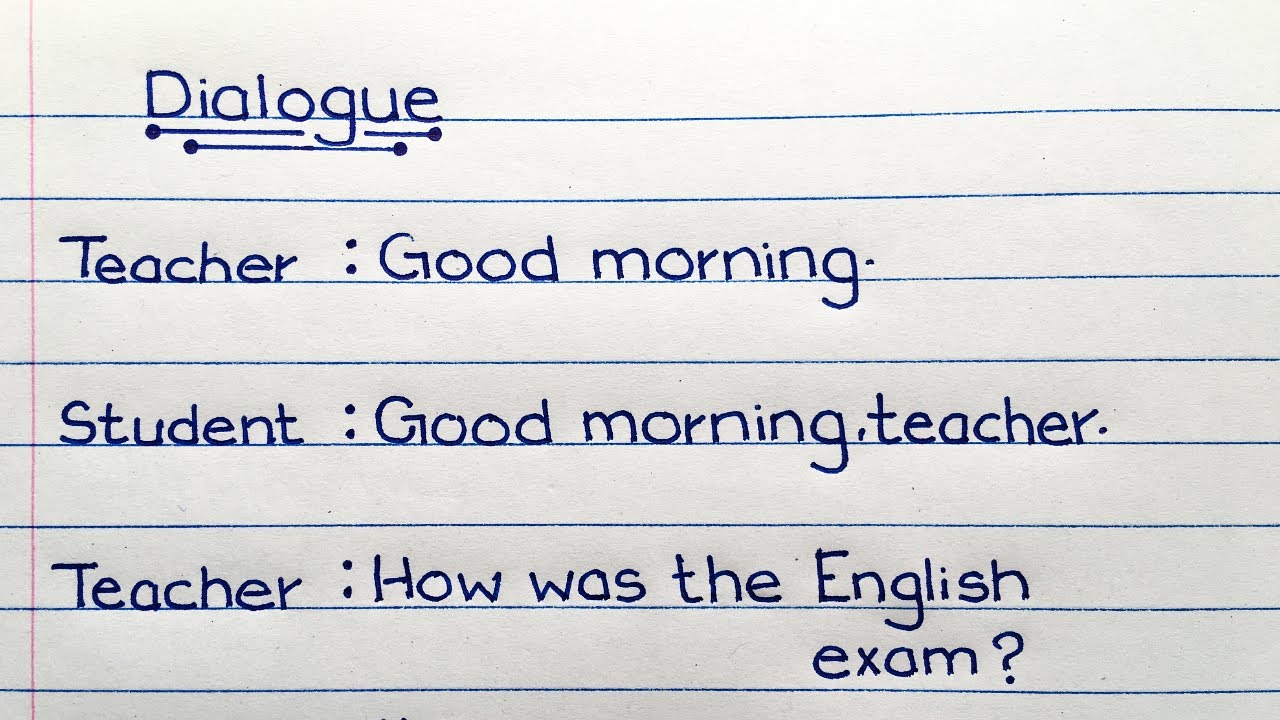 Dialogue
Teacher : Good morning.
Student : Good morning, teacher.
Teacher : How was the English
exam?